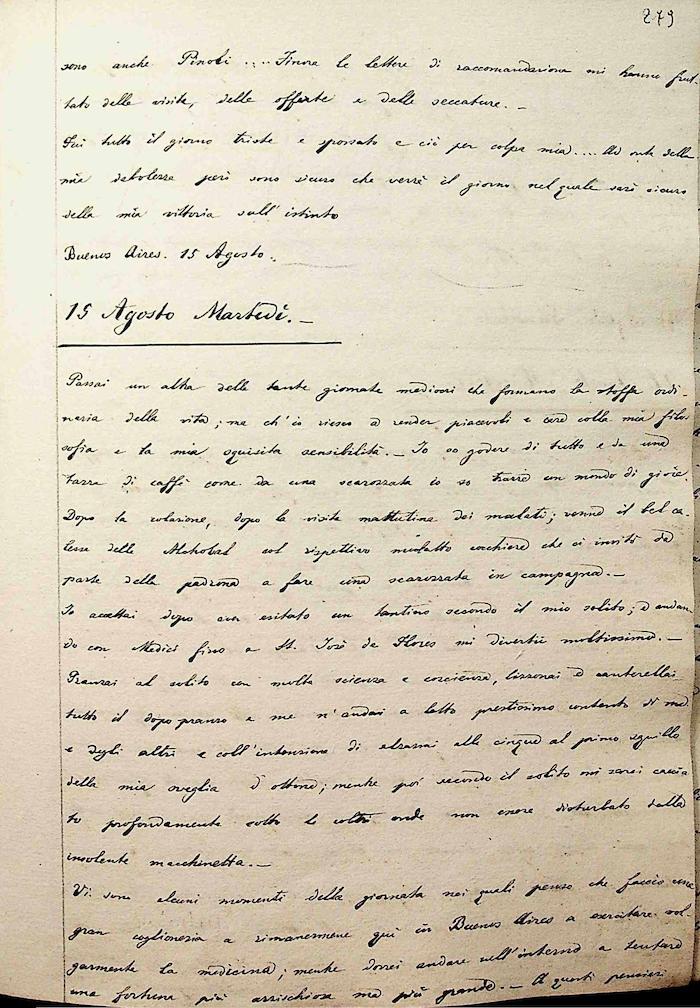 279
sono anche Pinoli .... Finora le lettere di raccomandazione mi hanno frut-
tato delle visite, delle offerte e delle seccature. _
Fui tutto il giorno triste e spossato e ciò per colpa mia .... Ad onta della
mia debolezza però sono sicuro che verrà il giorno nel quale sarò sicuro
della mia vittoria sull'istinto
Buenos Aires. 15 Agosto.
15 Agosto Martedì. _
Passai un altra delle tante giornate mediocri che formano la stoffa ordi-
naria della vita; ma ch'io riesco a render piacevoli e care colla mia filo-
sofia e la mia squisita sensibilità. _ Io so godere di tutto e da una
tazza di caffè come da una scarozzata io so trarre un mondo di gioie.
Dopo la colazione, dopo la visita mattutina dei malati; venne il bel ca-
lesse delle col rispettivo mulatto cocchiere che ci invitò da
parte della padrona a fare una scarozzata in campagna. _
Io accettai dopo aver esitato un tantino secondo il mio solito; e andan
do con Medici fino a St. José de Flores mi divertii moltissimo. _
Pranzai al solito con molta scienza e coscienza, e canterellai
tutto il dopo pranzo e me n'andai a letto prestissimo contento di me
e degli altri e coll'intenzione di alzarmi alle cinque al primo squillo
della mia sveglia d'ottone; mentre poi secondo il solito mi sarei caccia
to profondamente sotto le coltri onde non essere disturbato dalla
insolente macchinetta. _
Vi sono alcuni momenti della giornata nei quali penso che faccio una
gran coglioneria a rimanermene qui in Buenos Aires a esercitare vol-
garmente la medicina; mentre dovrei andare nell'interno a tentare
una fortuna più arrischiosa ma più grande. _ A questi pensieri